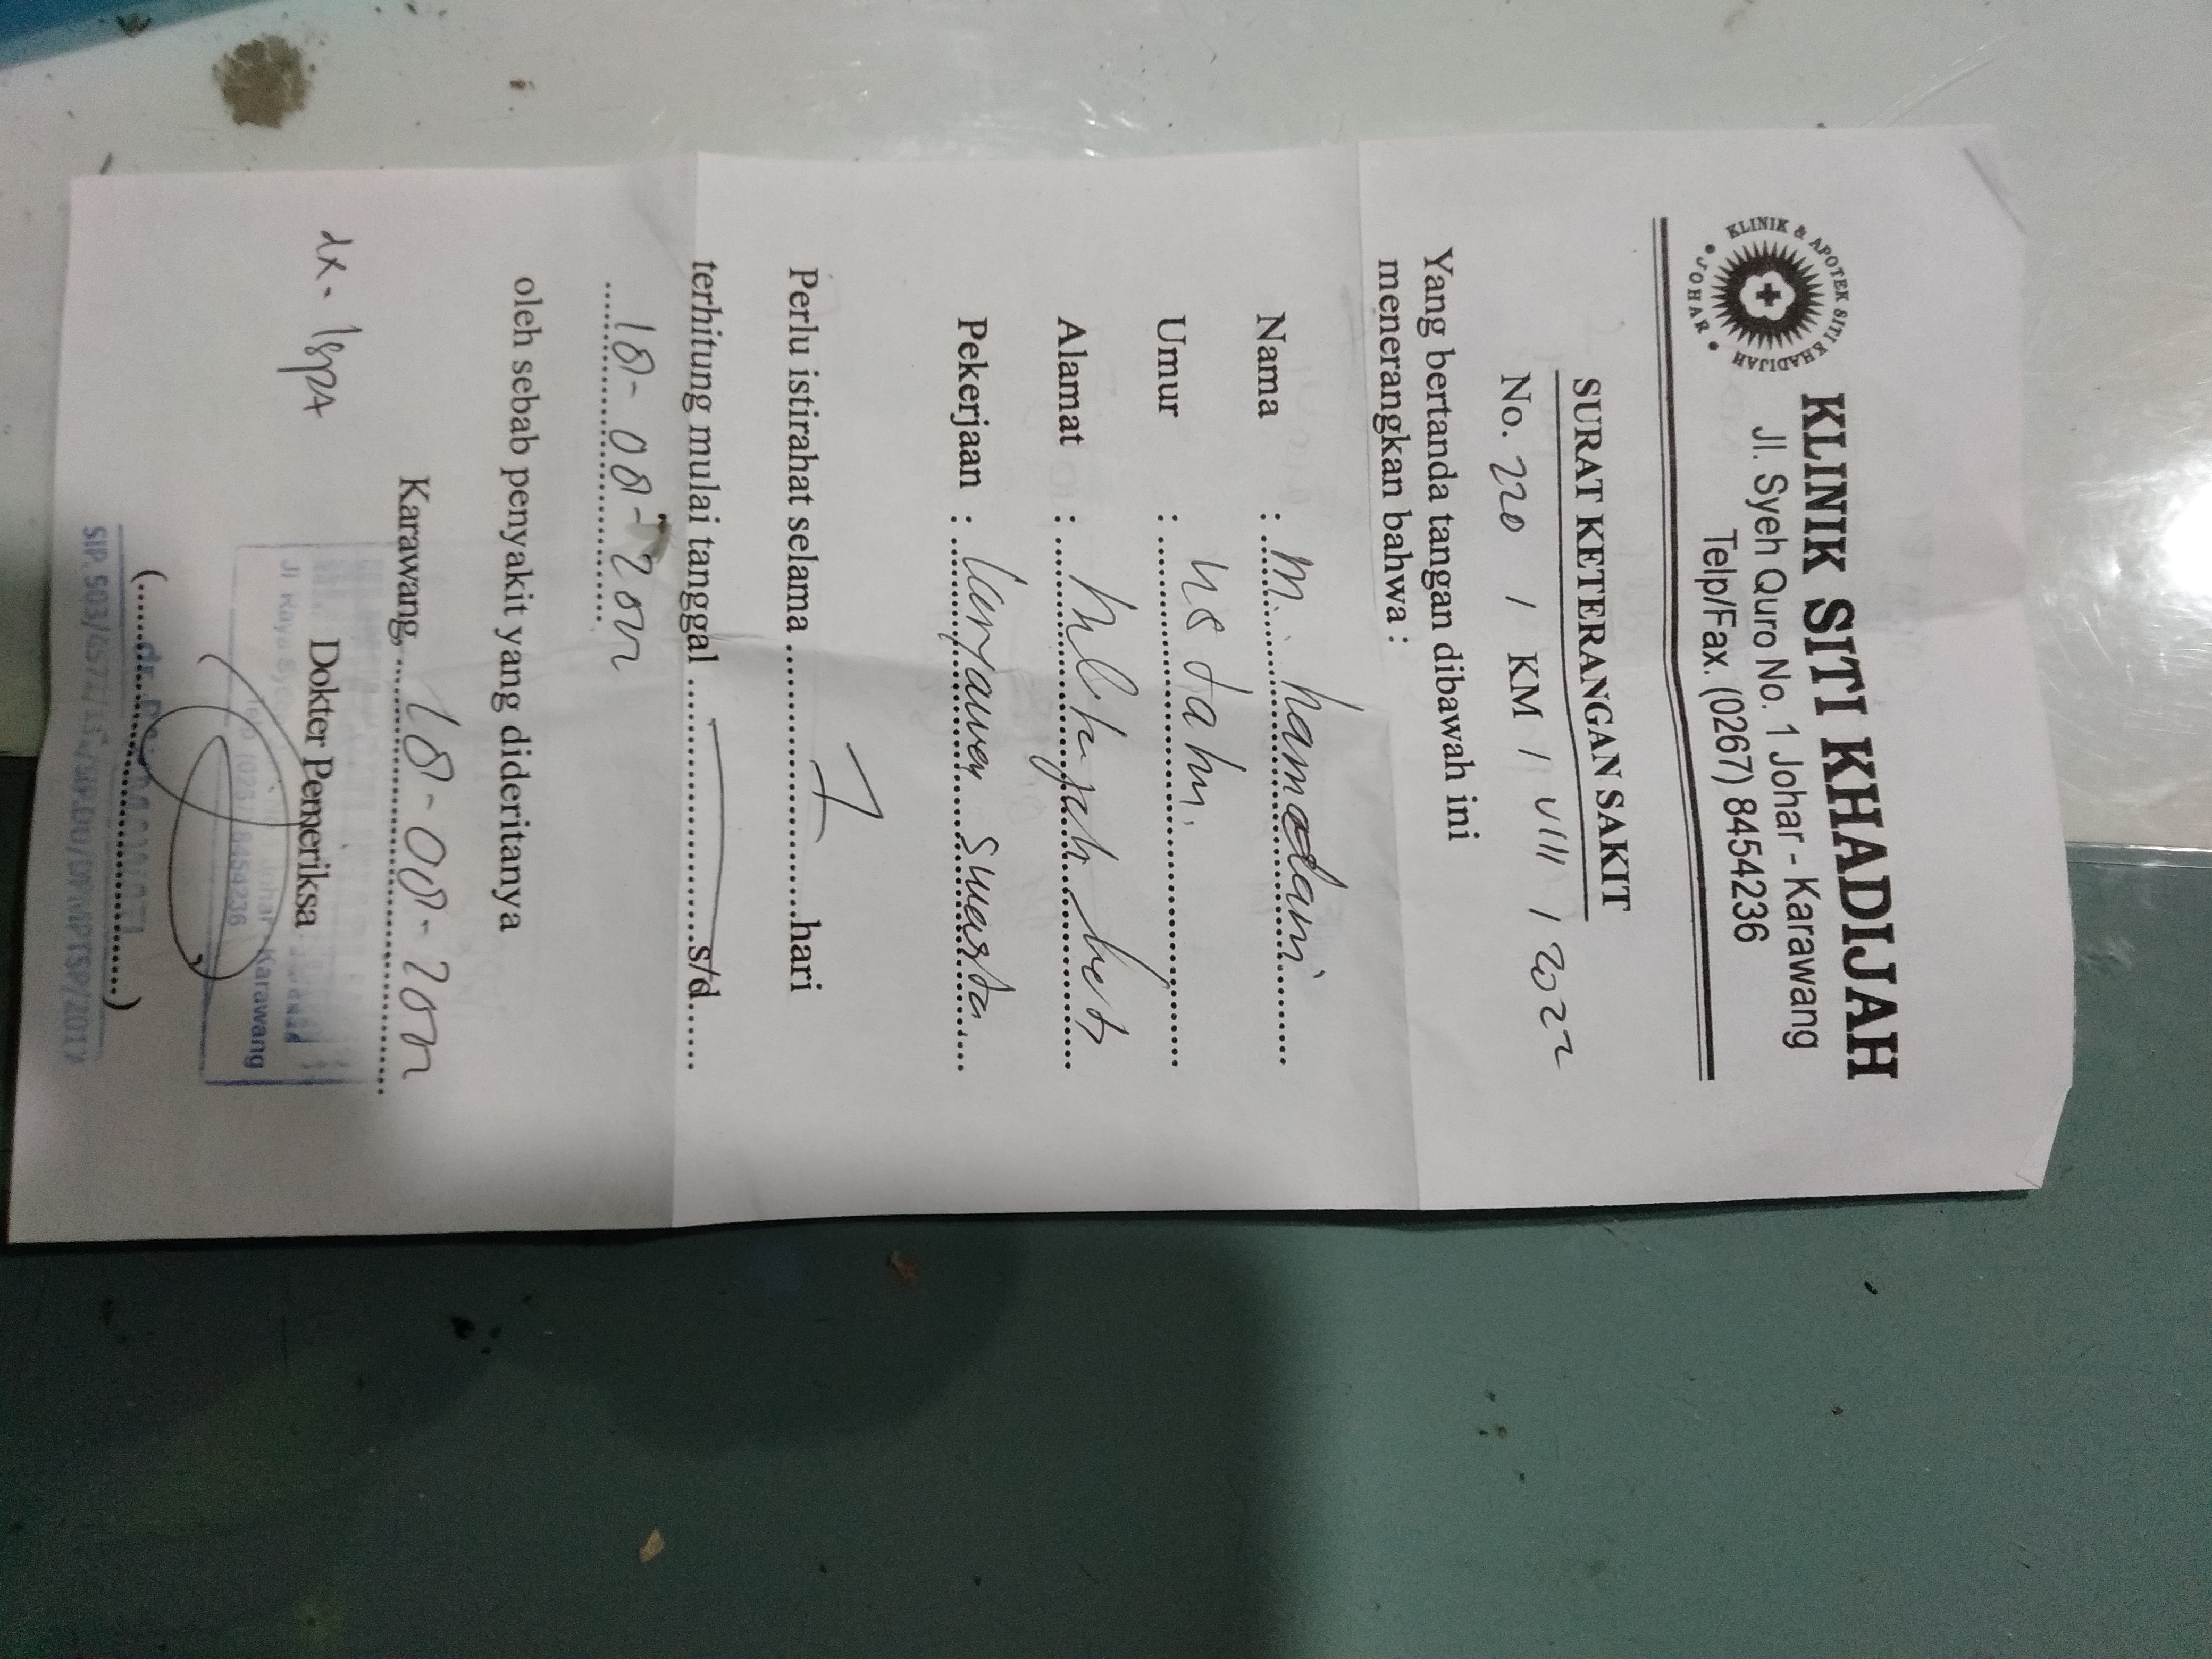 KLINIK & APOTEK SITI KHADIJAH
• JOHAR •
KLINIK SITI KHADIJAH
Jl. Syeh Quro No. 1 Johar - Karawang
Telp/Fax. (0267) 8454236
SURAT KETERANGAN SAKIT
No. 220 / KM / VIII / 2022
Yang bertanda tangan dibawah ini
menerangkan bahwa :
Nama : M. hamdani
Umur : 45 tahn.
Alamat :
Pekerjaan : karyawan swasta
Perlu istirahat selama 1 hari
terhitung mulai tanggal s/d
18-08-2022
oleh sebab penyakit yang dideritanya
Karawang, 18-08-2022
dx. ISPA
Dokter Pemeriksa
Johar - Karawang
8454236
dr.